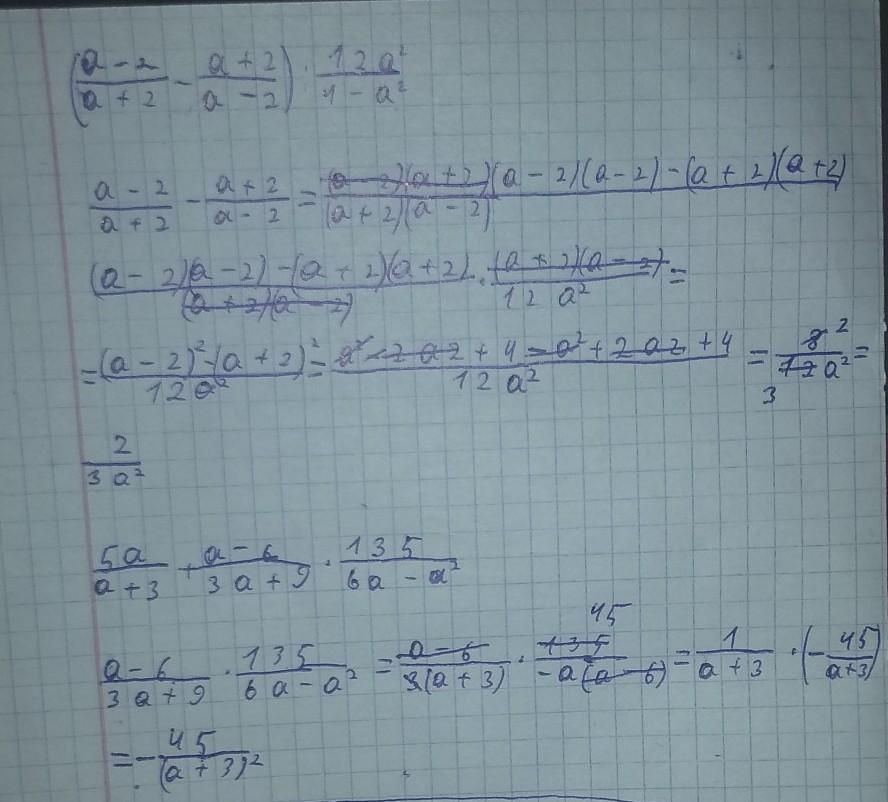 ((a - 2)/(a + 2) - (a + 2)/(a - 2)) : (12a²)/(4 - a²)
(a - 2)/(a + 2) - (a + 2)/(a - 2) = ((a - 2)(a + 2)(a - 2)(a - 2) - (a + 2)(a + 2))/((a + 2)(a - 2))
((a - 2)(a - 2) - (a + 2)(a + 2))/((a + 2)(a - 2)) · ((a + 2)(a - 2))/(12a²) =
= ((a - 2)² - (a + 2)²)/(12a²) = (a² - 2a2 + 4 - a² + 2a2 + 4)/(12a²) = (8 2)/(12 3 a²) =
2/(3a²)
5a/(a + 3) + (a - 6)/(3a + 9) · 135/(6a - a²)
(a - 6)/(3a + 9) · 135/(6a - a²) = (a - 6)/(3(a + 3)) · (135 45)/(-a(a - 6)) = 1/(a + 3) · (-45/(a + 3))
= -45/(a + 3)²